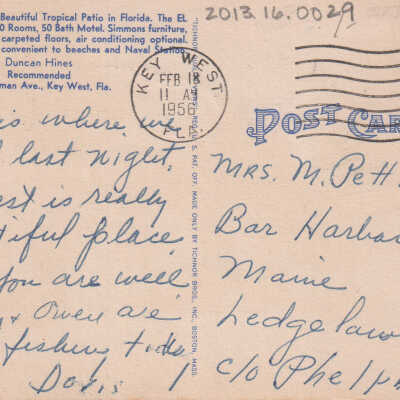 2013.16.0029
Beautiful Tropical Patio in Florida. The EL
0 Rooms, 50 Bath Motel. Simmons furniture,
carpeted floors, air conditioning optional.
convenient to beaches and Naval Station
Duncan Hines
Recommended
man Ave., Key West, Fla.
KEY WEST
FEB 18
11 AM
1956
FLA
POST CAR
is where we
last night.
est is really
tiful place
you are well
Owen are
fishing today
Doris
MRS. M. Pett
Bar Harbo
Maine
Ledgelaw
c/o Phelp
PAT. OFF. MADE ONLY BY TICHNOR BROS., INC., BOSTON, MASS.